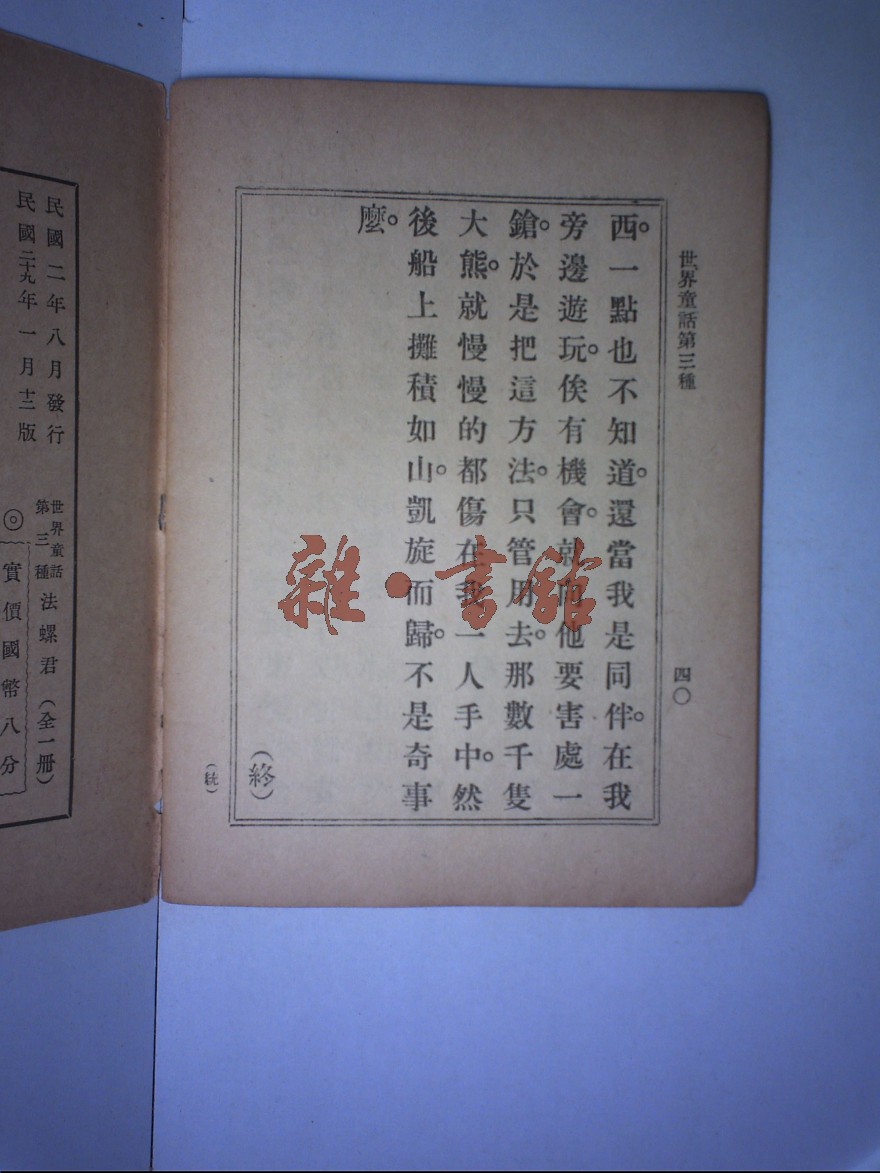 世界童話第三種
四〇
西。一點也不知道。還當我是同伴。在我
旁邊遊玩。俟有機會。就向他要害處一
鎗。於是把這方法。只管用去。那數千隻
大熊。就慢慢的都傷在我一人手中。然
後船上攤積如山。凱旋而歸。不是奇事
麼。
（終）
民國二年八月發行
民國二十九年一月十二版
世界童話第三種 法螺君（全一冊）
◎實價國幣八分
雜·書館